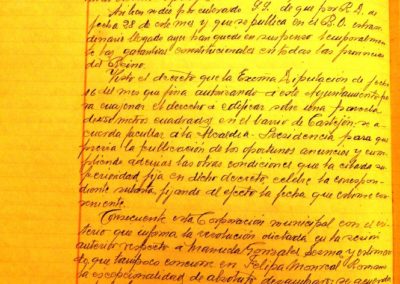 Tambien se dió por enterado S.S. de que por R.D. de
fecha 28 de este mes y que se publica en el B.O. extraor
dinario llegado aqui han quedado en suspenso temporalmen
te las garantias constitucionales en todas las provincias
del Reino.
Visto el decreto que la Excma Diputación de fecha
16 del mes que fina autorizando á este Ayuntamiento pa
ra enajenar el derecho á edificar sobre una parcela
de metros cuadrados en el barrio de Castejón se a
cuerda facultar á la Alcaldia-Presidencia para que
previa la publicación de los oportunos anuncios y cum
pliendo ademas las otras condiciones que la citada su
perioridad fija en dicho decreto, celebre la correspon
diente subasta fijando al efecto la fecha que estime con
veniente.
Consecuente esta Corporación municipal con el cri
terio que informa la resolución dictada en la sesión
anterior respecto á Manuela Gonzalez Lerma y estiman
do que tampoco concurre en Felipa Monreal Romano
la excepcionalidad de absoluto desamparo se acuerda